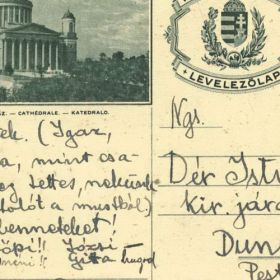 ÁZ. — CATHÉDRALE. — KATEDRALO.
LEVELEZŐLAP
ek. (Igaz,
a, mint csa-
tettes, nekünk
a mustból)
benneteket!
Józsi
Gita
Ngs.
Dér Ist
kir. jára
Dun
Pes